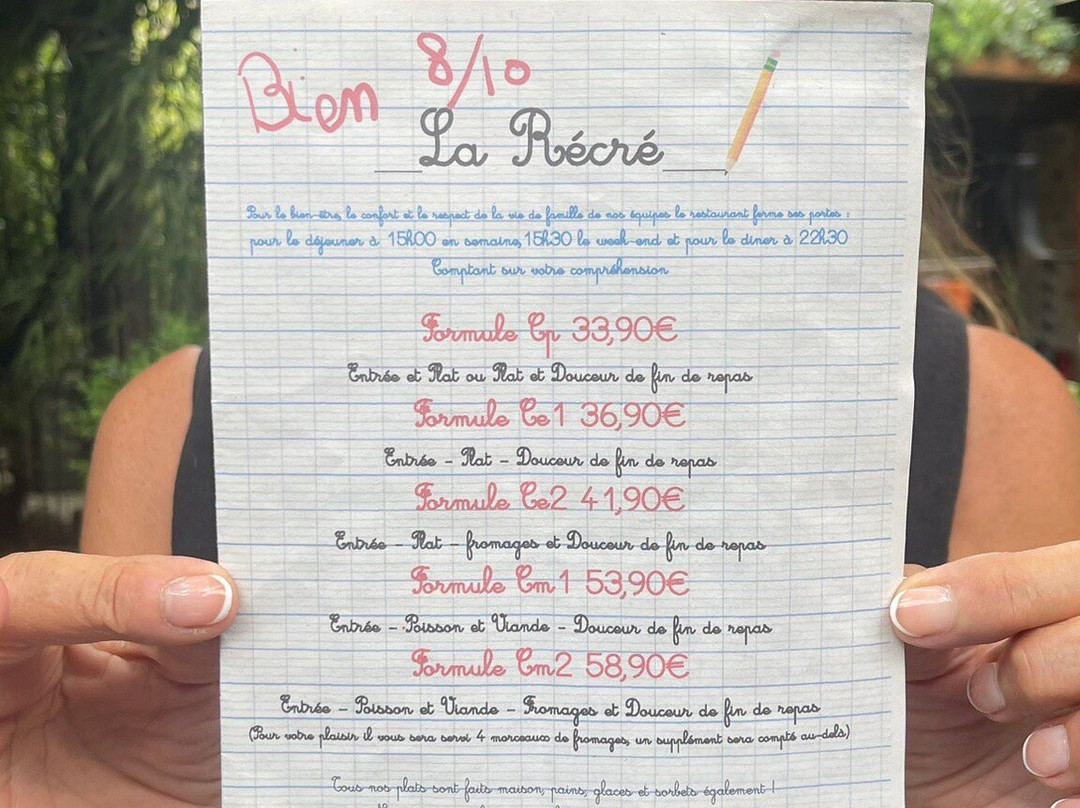 Bien 8/10
La Récré
Pour le bien-être, le confort et le respect de la vie de famille de nos équipes le restaurant ferme ses portes :
pour le déjeuner à 15h00 en semaine, 15h30 le week-end et pour le diner à 22h30
Comptant sur votre compréhension
Formule Cp 33,90€
Entrée et Plat ou Plat et Douceur de fin de repas
Formule Ce1 36,90€
Entrée - Plat - Douceur de fin de repas
Formule Ce2 41,90€
Entrée - Plat - fromages et Douceur de fin de repas
Formule Cm1 53,90€
Entrée - Poisson et Viande - Douceur de fin de repas
Formule Cm2 58,90€
Entrée - Poisson et Viande - Fromages et Douceur de fin de repas
(Pour votre plaisir il vous sera servi 4 morceaux de fromages, un supplément sera compté au-delà)
Tous nos plats sont faits maison, pains, glaces et sorbets également !